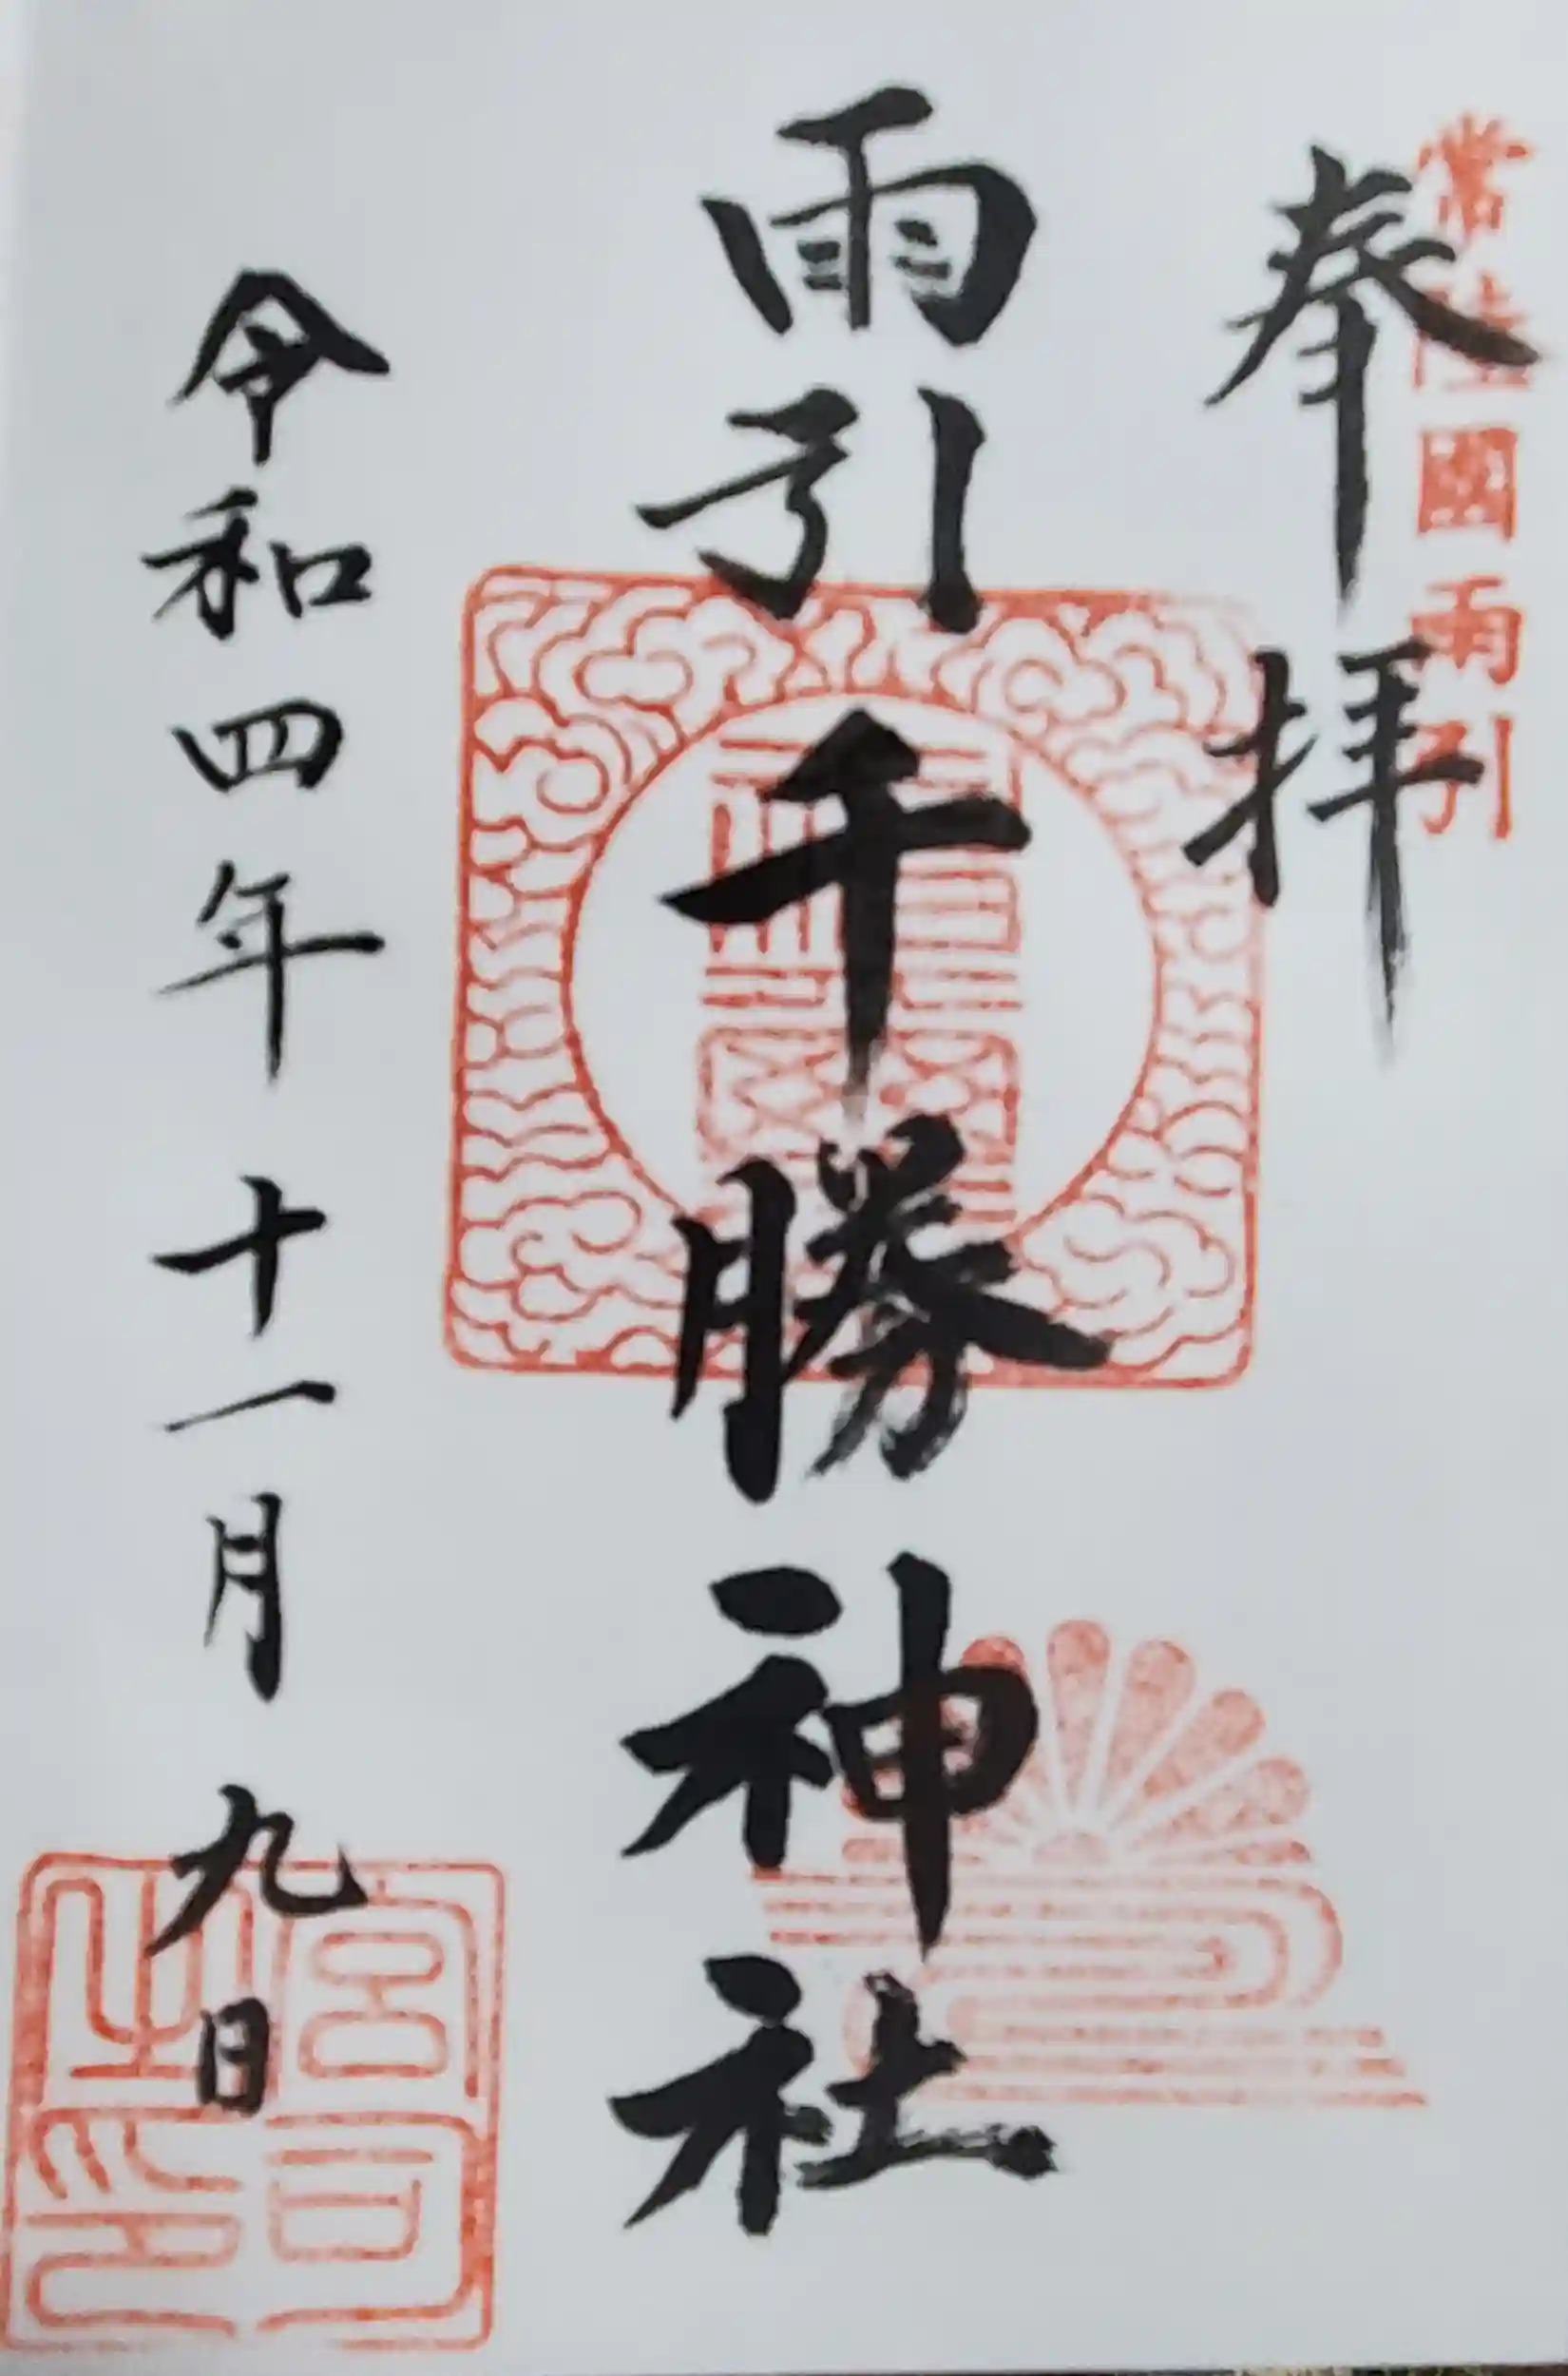 常陸國雨引
奉拝
雨引千勝神社
令和四年十一月九日
宮司之印